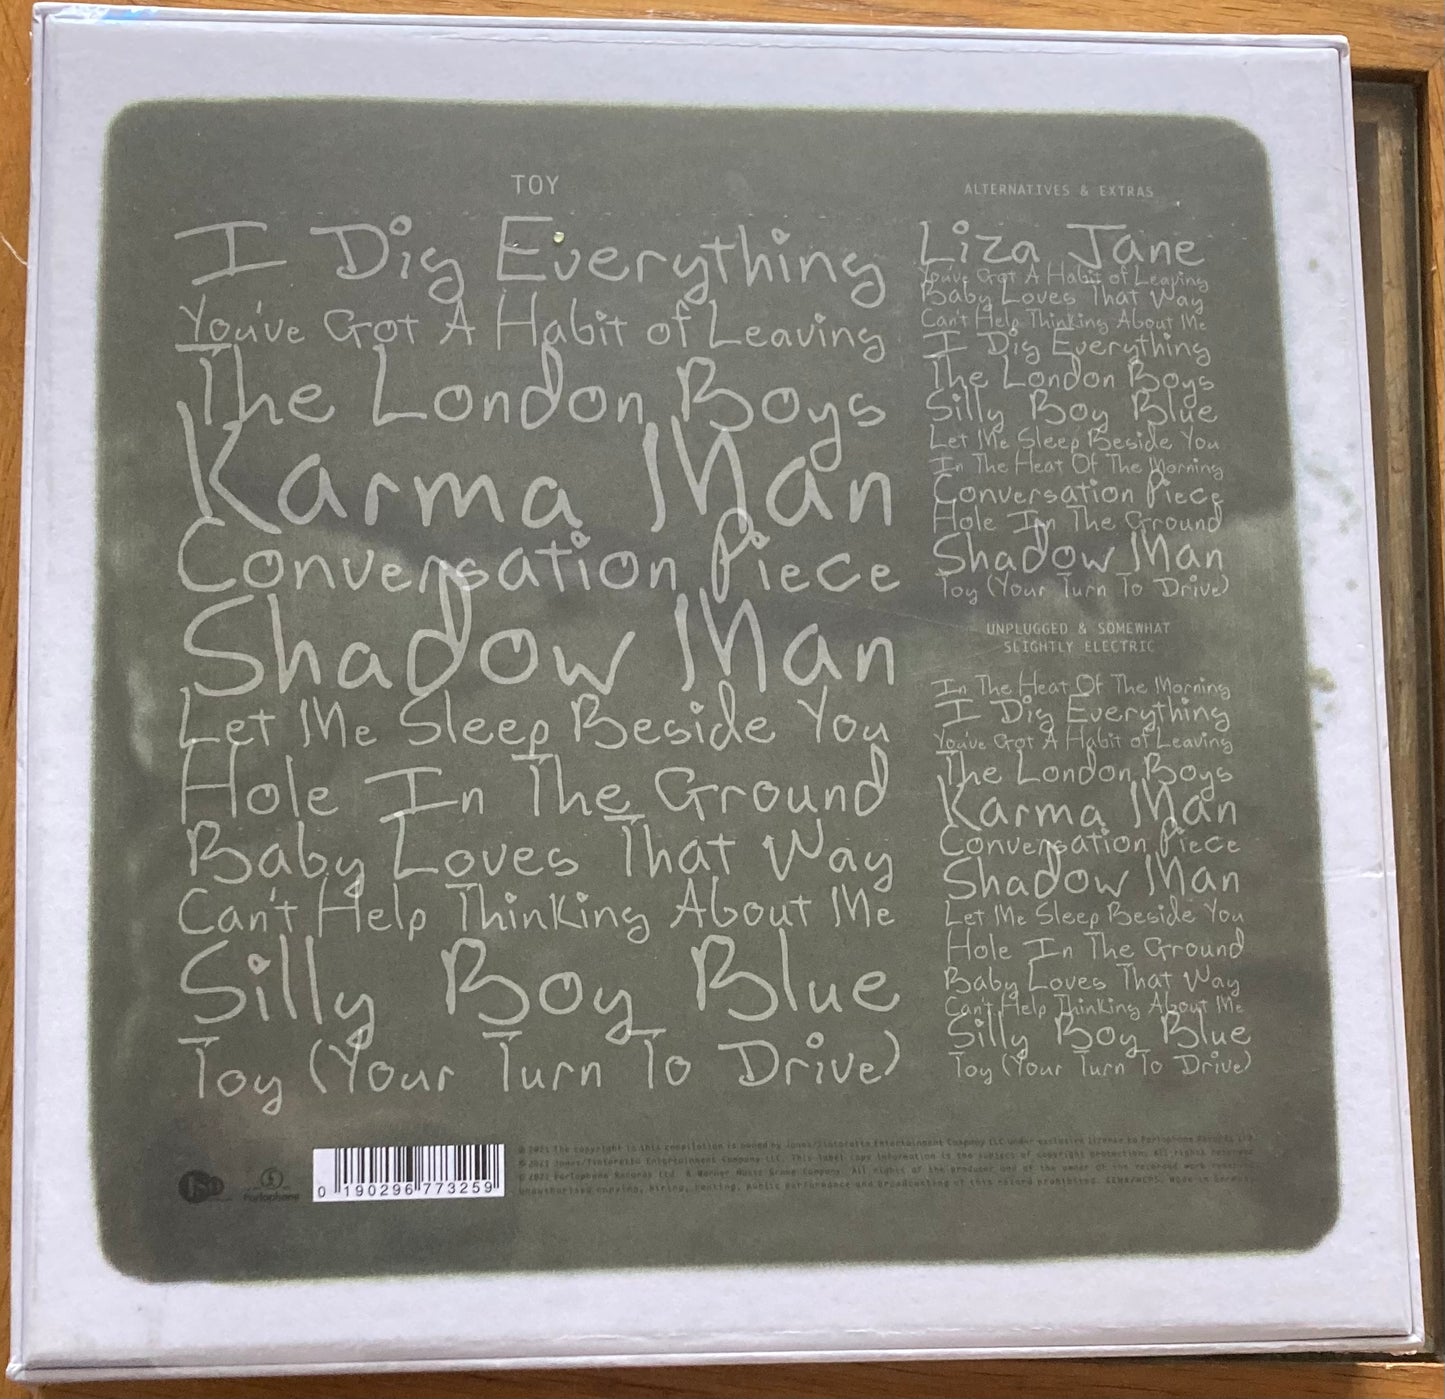 TOY
I Dig Everything
You've Got A Habit of Leaving
The London Boys
Karma Man
Conversation Piece
Shadow Man
Let Me Sleep Beside You
Hole In The Ground
Baby Loves That Way
Can't Help Thinking About Me
Silly Boy Blue
Toy (Your Turn To Drive)
ALTERNATIVES & EXTRAS
Liza Jane
You've Got A Habit of Leaving
Baby Loves That Way
Can't Help Thinking About Me
I Dig Everything
The London Boys
Silly Boy Blue
Let Me Sleep Beside You
In The Heat Of The Morning
Conversation Piece
Hole In The Ground
Shadow Man
Toy (Your Turn To Drive)
UNPLUGGED & SOMEWHAT
SLIGHTLY ELECTRIC
In The Heat Of The Morning
I Dig Everything
You've Got A Habit of Leaving
The London Boys
Karma Man
Conversation Piece
Shadow Man
Let Me Sleep Beside You
Hole In The Ground
Baby Loves That Way
Can't Help Thinking About Me
Silly Boy Blue
Toy (Your Turn To Drive)
Parlophone
0 190296 773259
℗ 2021 The copyright in this compilation is owned by Jones/Tintoretto Entertainment Company LLC under exclusive license to Parlophone Records Ltd
© 2021 Jones/Tintoretto Entertainment Company LLC. This label copy information is the subject of copyright protection. All rights
© 2021 Parlophone Records Ltd. A Warner Music Group Company. All rights of the producer and of the owner of the recorded work
Unauthorised copying, hiring, renting, public performance and broadcasting of this record prohibited. GEMA/MCPS. Made in Germany